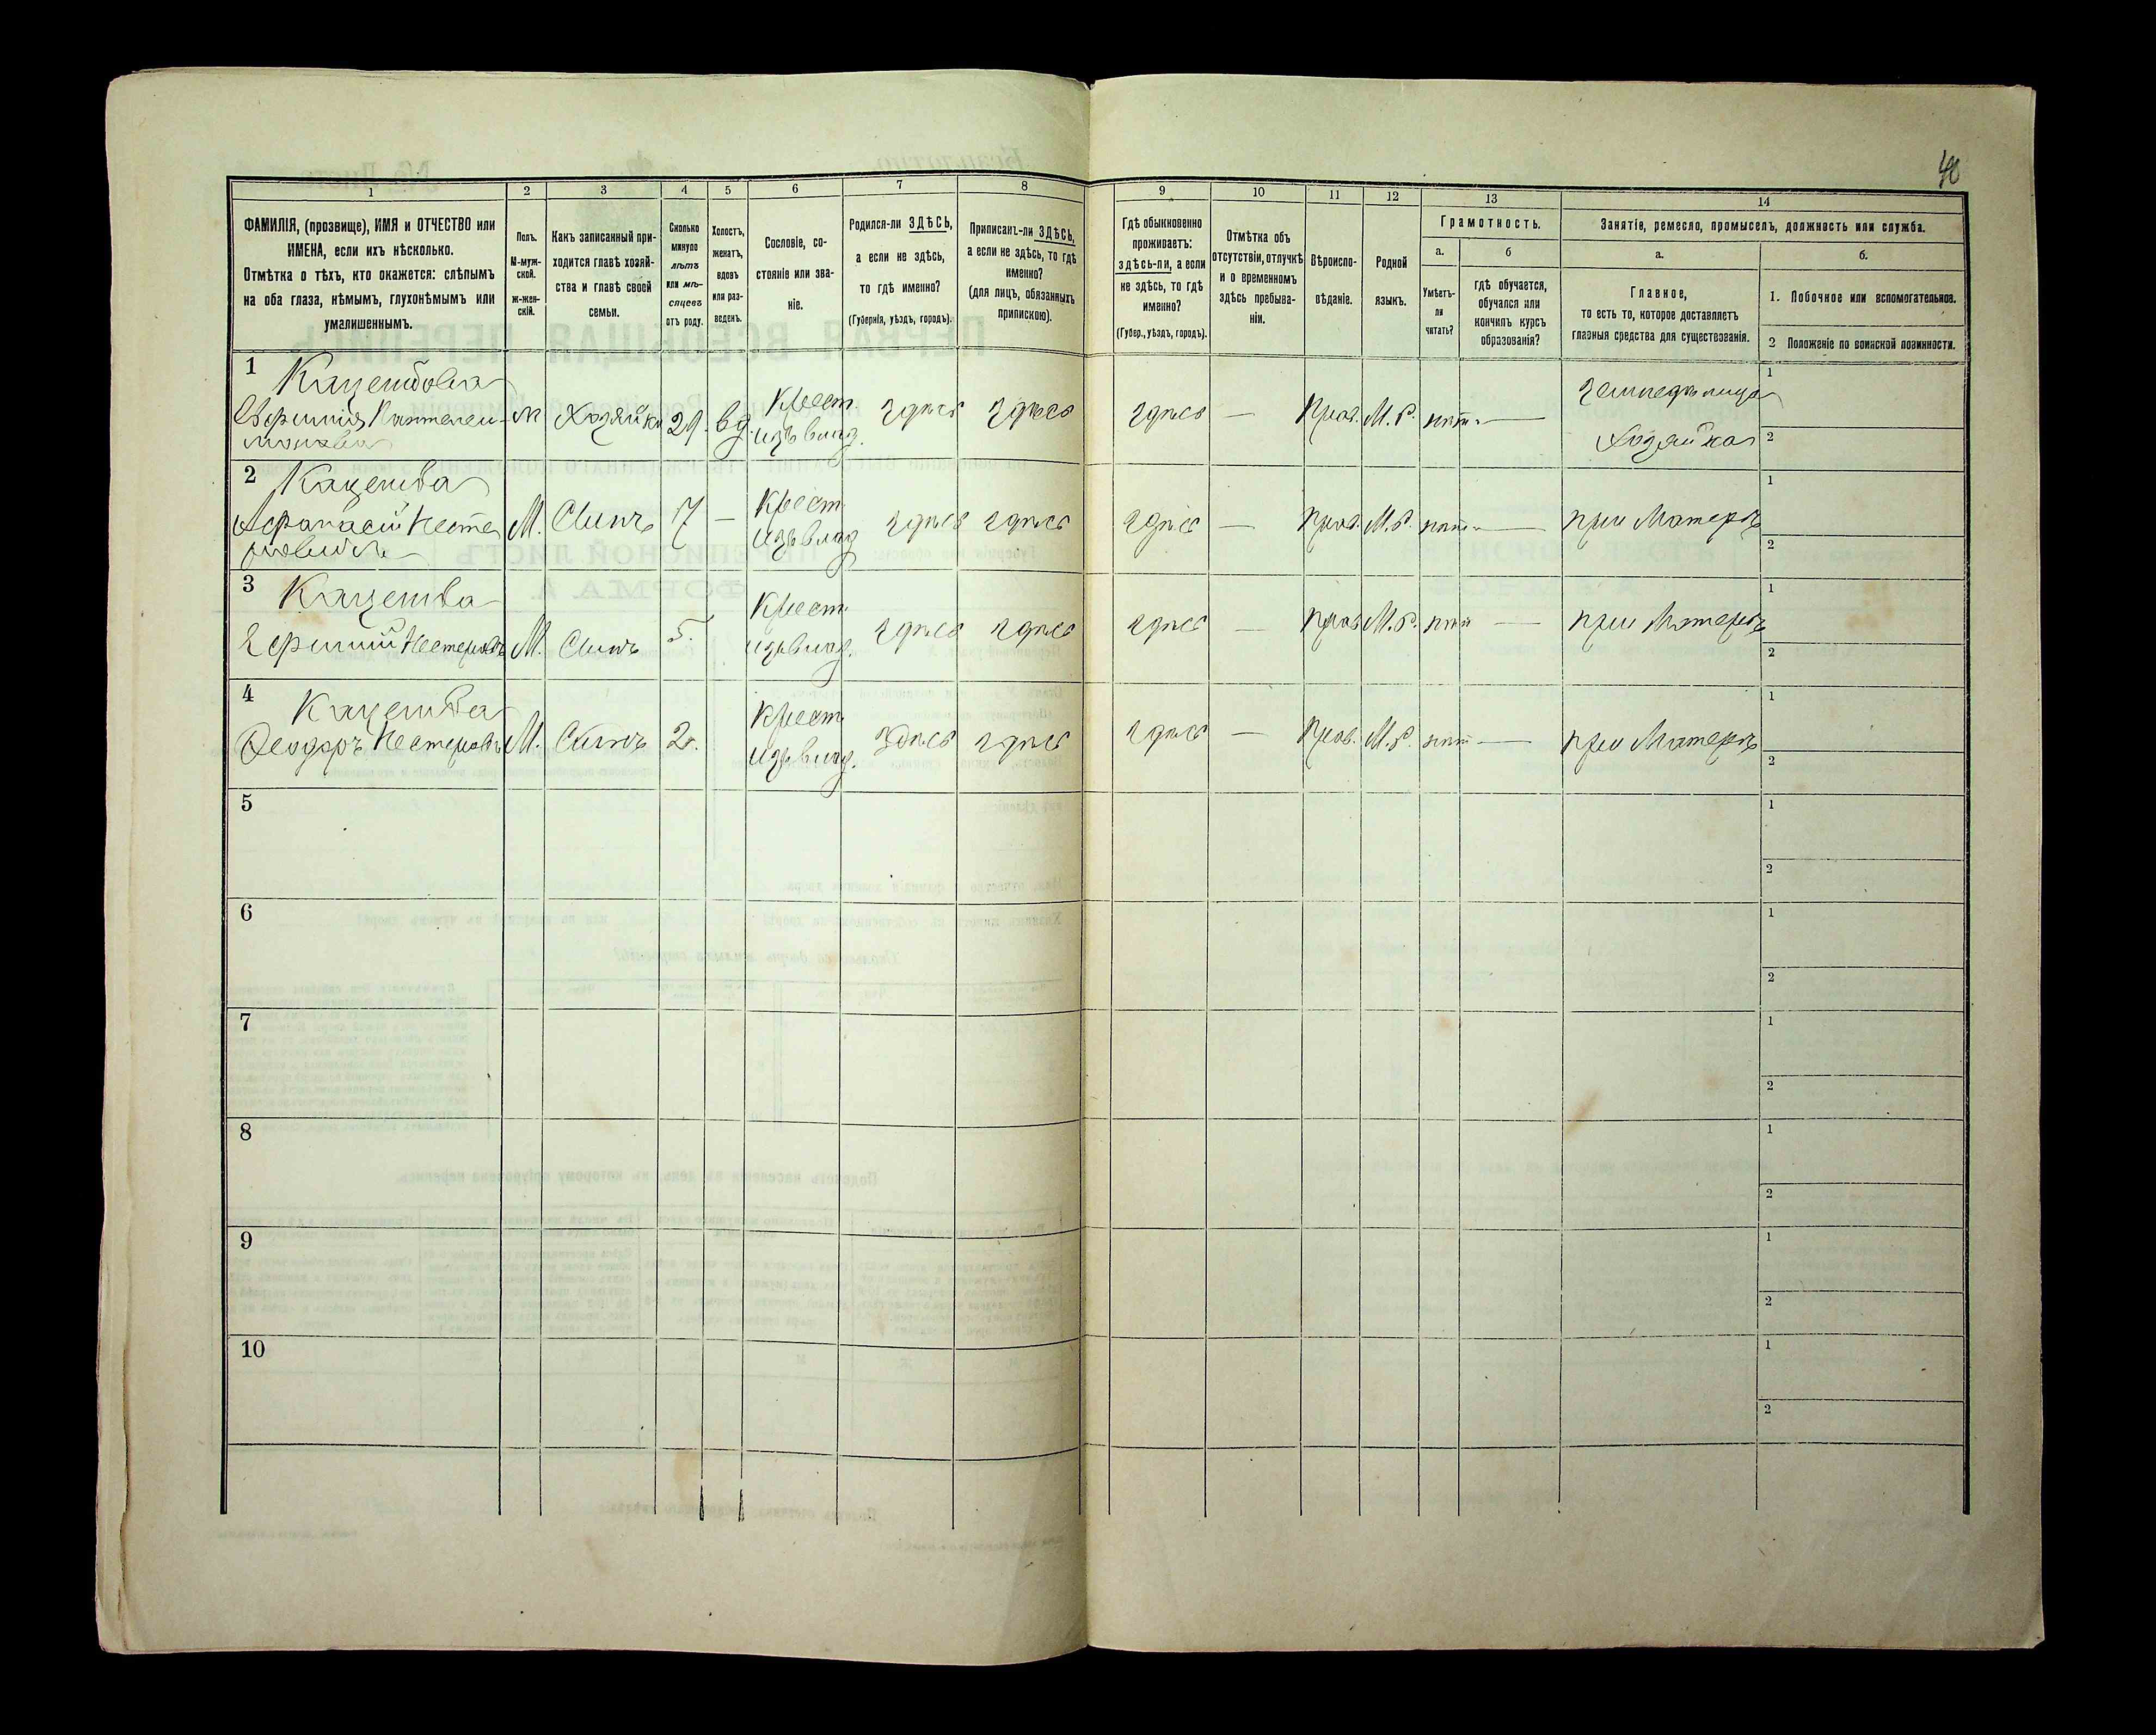 40
1
2
3
4
5
6
7
8
9
10
11
12
13
14
ФАМИЛІЯ, (прозвище), ИМЯ и ОТЧЕСТВО или
ИМЕНА, если ихъ нѣсколько.
Отмѣтка о тѣхъ, кто окажется: слѣпымъ
на оба глаза, нѣмымъ, глухонѣмымъ или
умалишеннымъ.
Полъ.
М-муж-
ской.
ж-жен-
скій.
Какъ записанный при-
ходится главѣ хозяй-
ства и главѣ своей
семьи.
Сколько
минуло
лѣтъ
или мѣ-
сяцевъ
отъ роду.
Холостъ,
женатъ,
вдовъ
или раз-
веденъ.
Сословіе, со-
стояніе или зва-
ніе.
Родился-ли ЗДѢСЬ,
а если не здѣсь,
то гдѣ именно?
(Губернія, уѣздъ, городъ).
Приписанъ-ли ЗДѢСЬ,
а если не здѣсь, то гдѣ
именно?
(для лицъ, обязанныхъ
припискою).
Гдѣ обыкновенно
проживаетъ:
здѣсь-ли, а если
не здѣсь, то гдѣ
именно?
(Губер., уѣздъ, городъ).
Отмѣтка объ
отсутствіи, отлучкѣ
и о временномъ
здѣсь пребыва-
ніи.
Вѣроиспо-
вѣданіе.
Родной
языкъ.
Грамотность.
а.
б
Умѣетъ-
ли
читать?
гдѣ обучается,
обучался или
кончилъ курсъ
образованія?
Занятіе, ремесло, промыселъ, должность или служба.
а.
б.
Главное,
то есть то, которое доставляетъ
главныя средства для существованія.
1. Побочное или вспомогательное.
2 Положеніе по воинской повинности.
1
Хозяйка 29. вд. Крест. изъ влад. здѣсь здѣсь здѣсь — Прав. М. Р. нѣтъ —
Хозяйка
1
2
2
Афанасій
М. Сынъ 7 — Крест. изъ влад. здѣсь здѣсь здѣсь — Прав. М. Р. нѣтъ — при Матерѣ
1
2
3
М. Сынъ 5. Крест. изъ влад. здѣсь здѣсь здѣсь — Прав. М. Р. нѣтъ — при Матерѣ
1
2
4
Феодоръ Нестеровъ М. Сынъ 2. Крест. изъ влад. здѣсь здѣсь здѣсь — Прав. М. Р. нѣтъ — при Матерѣ
1
2
5
1
2
6
1
2
7
1
2
8
1
2
9
1
2
10
1
2